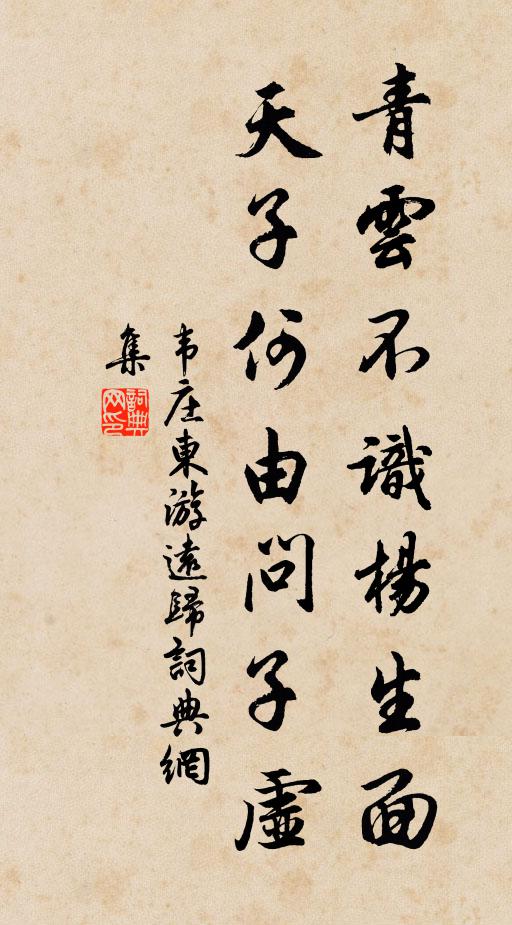 青雲不識楊生面
天子何由問子虛
韦庄東游遠歸詞典網
集
詞典
网印